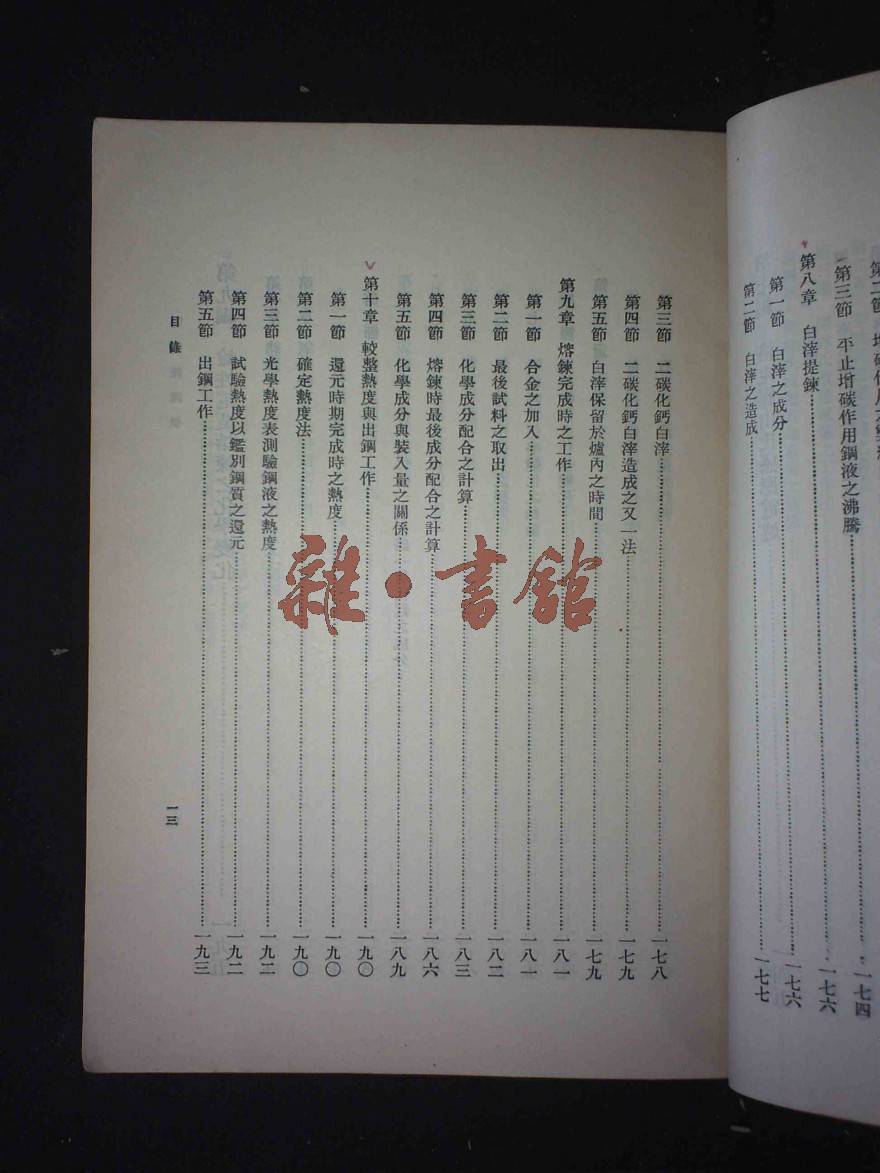 第三節 平止增碳作用鋼液之沸騰……一七四
第八章 白滓提鍊……一七六
第一節 白滓之成分……一七六
第二節 白滓之造成……一七七
第三節 二碳化鈣白滓……一七八
第四節 二碳化鈣白滓造成之又一法……一七九
第五節 白滓保留於爐內之時間……一七九
第九章 熔鍊完成時之工作……一八一
第一節 合金之加入……一八一
第二節 最後試料之取出……一八二
第三節 化學成分配合之計算……一八三
第四節 熔鍊時最後成分配合之計算……一八六
第五節 化學成分與裝入量之關係……一八九
第十章 較整熱度與出鋼工作……一九〇
第一節 還元時期完成時之熱度……一九〇
第二節 確定熱度法……一九〇
第三節 光學熱度表測驗鋼液之熱度……一九二
第四節 試驗熱度以鑑別鋼質之還元……一九二
第五節 出鋼工作……一九三
目錄
一三
雜·書館